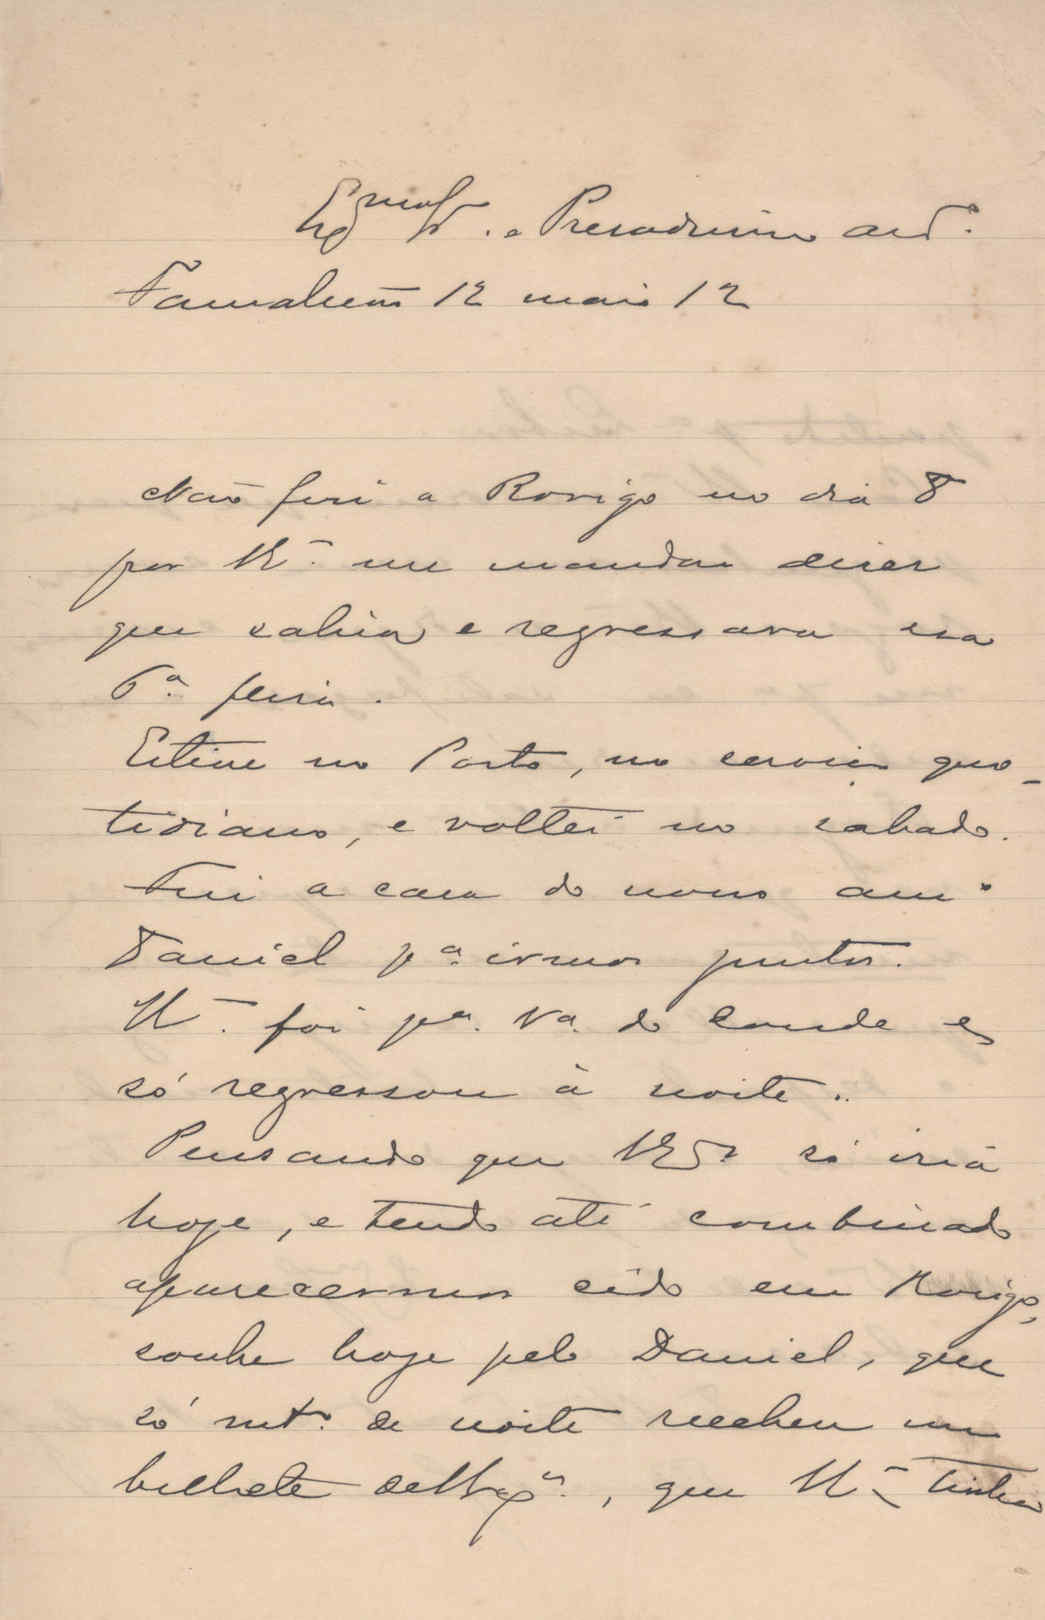 Exmo Sr. e Presadissimo am.º
Famalicão 12 maio 12
Não fui a Rorigo no dia 8
por V.ª me mandar dizer
que sahia e regressava na
6ª feira.
Estive no Porto, no serviço quo-
tidiano, e voltei no sabado.
Fui a casa do nosso am.º
Daniel p.ª irmos juntos.
V.ª foi p.ª V.ª do Conde e
só regressou à noite.
Pensando que só iria
hoje, e tendo até combinado
aparecermos cêdo em Rorigo,
soube hoje pelo Daniel, que
só mt.º de noite recebeu um
bilhete de V. Ex.ª, que V.ª tinha